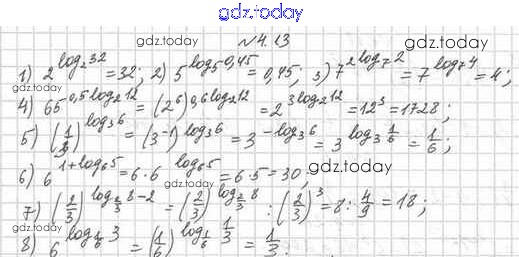 gdz.today
№4.13
gdz.today gdz.today gdz.today
1) 2^{log_2 32} = 32; 2) 5^{log_5 0,45} = 0,45; 3) 7^{2 log_7 2} = 7^{log_7 4} = 4;
4) 65^{0,5 log_2 12} = (2^6)^{0,6 log_2 12} = 2^{3 log_2 12} = 12^3 = 1728;
gdz.today gdz.today
5) (1/3)^{log_3 6} = (3^{-1})^{log_3 6} = 3^{-log_3 6} = 3^{log_3 1/6} = 1/6;
6) 6^{1+log_6 5} = 6·6^{log_6 5} = 6·5 = 30;
gdz.today gdz.today
7) (2/3)^{log_{2/3} 8-2} = (2/3)^{log_{2/3} 8} : (2/3)^3 = 8 : 4/9 = 18;
gdz.today gdz.today
8) 6^{log_{1/6} 3} = (1/6)^{log_{1/6} 1/3} = 1/3.
gdz.today